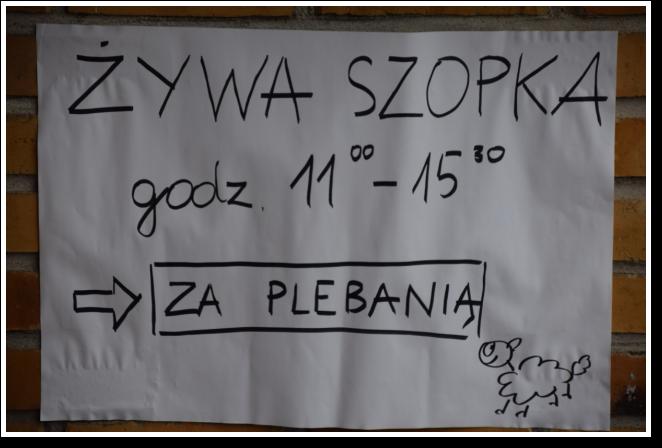 ŻYWA SZOPKA
godz. 11⁰⁰ - 15³⁰
ZA PLEBANIĄ